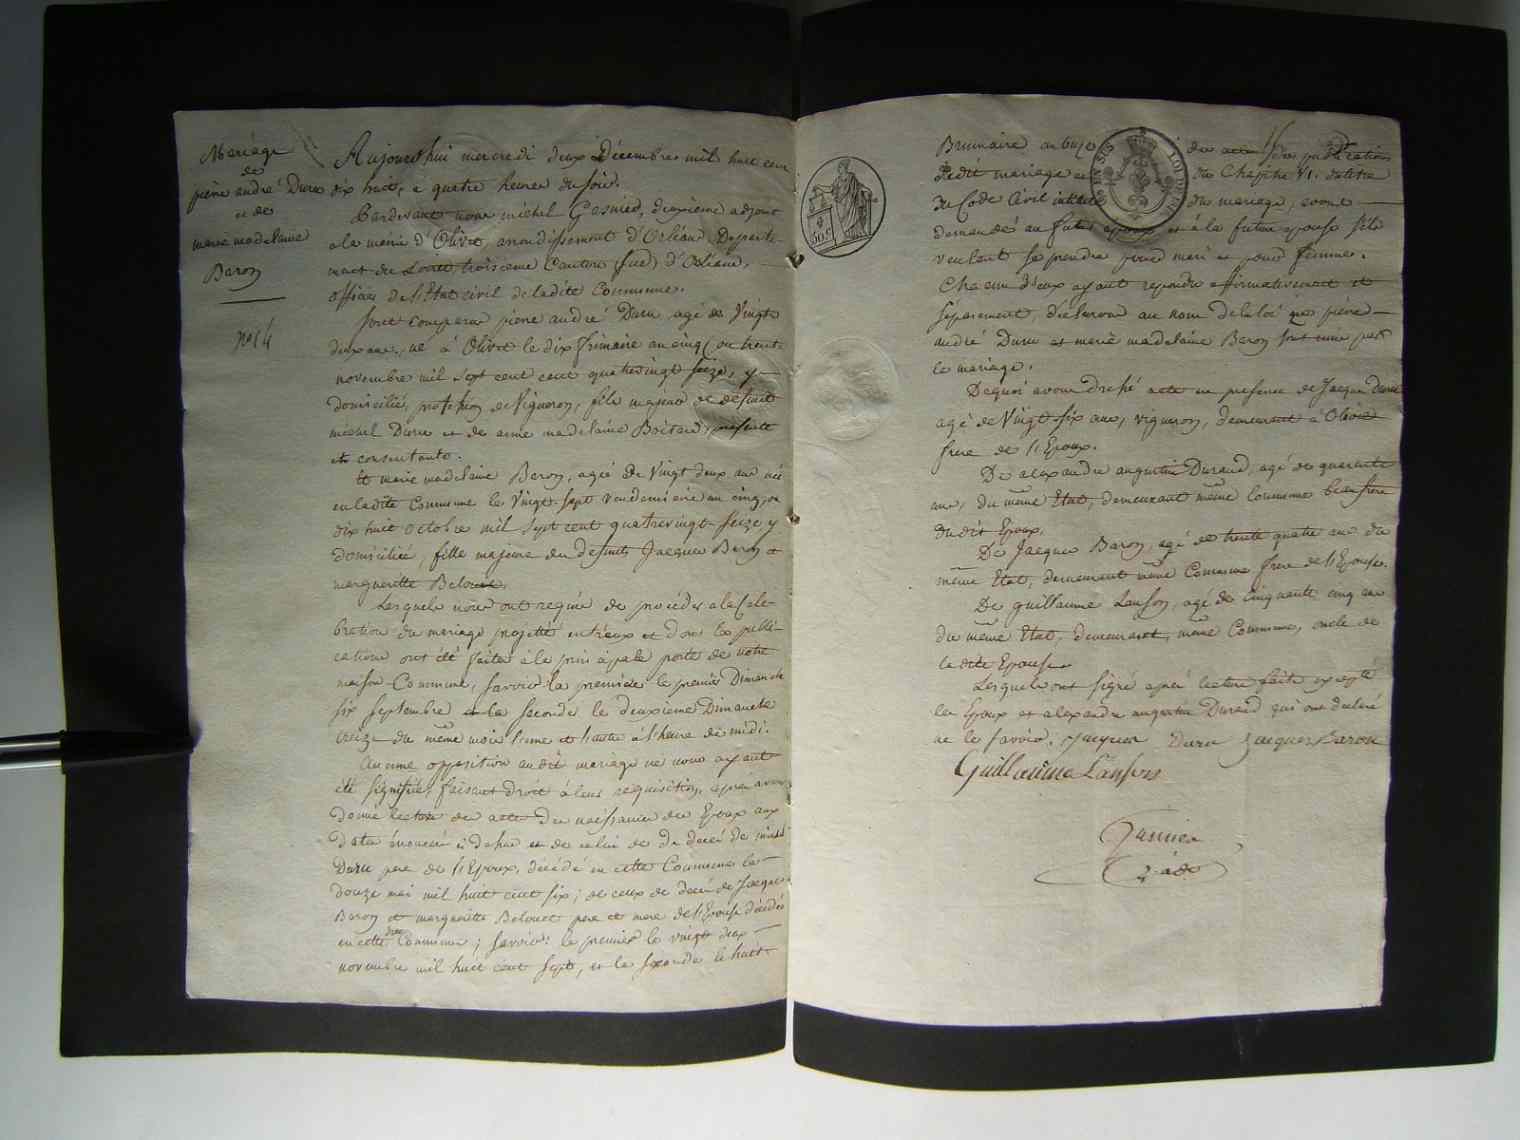 Mariage
de
pierre andré Duru
et de
marie madelaine
Baron
nº 14
Aujourd'hui mercredi deux Décembre mil huit cent
dix huit, a quatre heures du soir.
Pardevant nous michel Gesnier, deuxieme adjoint
a la mairie d'Olivet, arrondissement d'Orléans Departe-
ment du Loiret, troisieme Canton (sud) d'Orléans,
officier de l'Etat civil de ladite Commune.
Sont comparu pierre andré Duru, agé de Vingt
deux ans, né à Olivet le dix frimaire an cinq (ou trente
novembre mil sept cent quatrevingt seize, y
domicilié, profession de Vigneron, fils majeur de defunt
michel Duru et de anne madelaine Boitard, presente
et consentante.
Et marie madelaine Baron, agée de Vingt deux ans née
en ladite Commune le Vingt-sept Vendemiaire an cinq, ou
dix huit octobre mil sept cent quatrevingt-seize y
domiciliée, fille majeure des defunts Jacques Baron et
marguerite Belouet.
Lesquels nous ont requis de procéder a la Cele-
bration du mariage projetté entr'eux et dont les publi-
cations ont été faites à la principale porte de notre
maison Commune, savoir: la premiere le premier Dimanche
six septembre et la seconde le deuxieme Dimanche
treize du même mois l'une et l'autre à l'heure de midi.
Aucune opposition audit mariage ne nous ayant
été signifiée, faisant droit à leur requisition, après avoir
donné lecture des actes de naissance des Epoux aux
dates énoncées ci dessus et de celui de décès de michel
Duru pere de l'Epoux, décédé en cette Commune le
douze mai mil huit cent six; de ceux de décès de Jacques
Baron et marguerite Belouet pere et mere de l'Epouse décédés
en cette Commune; savoir: le premier le vingt deux
novembre mil huit cent sept, et la seconde le huit
Brumaire an onze des publications
dudit mariage et du Chapitre VI. du titre
du Code Civil intitulé du mariage, avons
demandés au futur epoux et à la future epouse s'ils
veulent se prendre pour mari et pour femme.
Chacun d'eux ayant repondu affirmativement et
séparement, déclarons au nom de la loi que pierre
andré Duru et marie madelaine Baron sont unis par
le mariage.
De quoi avons dressé acte en presence de Jacques Duru
agé de Vingt six ans, vigneron, demeurant à Olivet
frere de l'Epoux.
De alexandre augustin Duraud, agé de quarante
ans, du même Etat, demeurant même Commune beau frere
dudit Epoux.
De Jacques Baron, agé de trente quatre ans du
même Etat, demeurant même Commune frere de l'Epouse.
De guillaume Lanson, agé de Cinquante cinq ans
du même Etat, demeurant, même Commune, oncle de
ladite Epouse.
Lesquels ont signé après lecture faite excepté
les Epoux et alexandre augustin Duraud qui ont declaré
ne le savoir. Jacques Duru Jacques Baron
Guillaume Lanson
Gesnier
2. adt